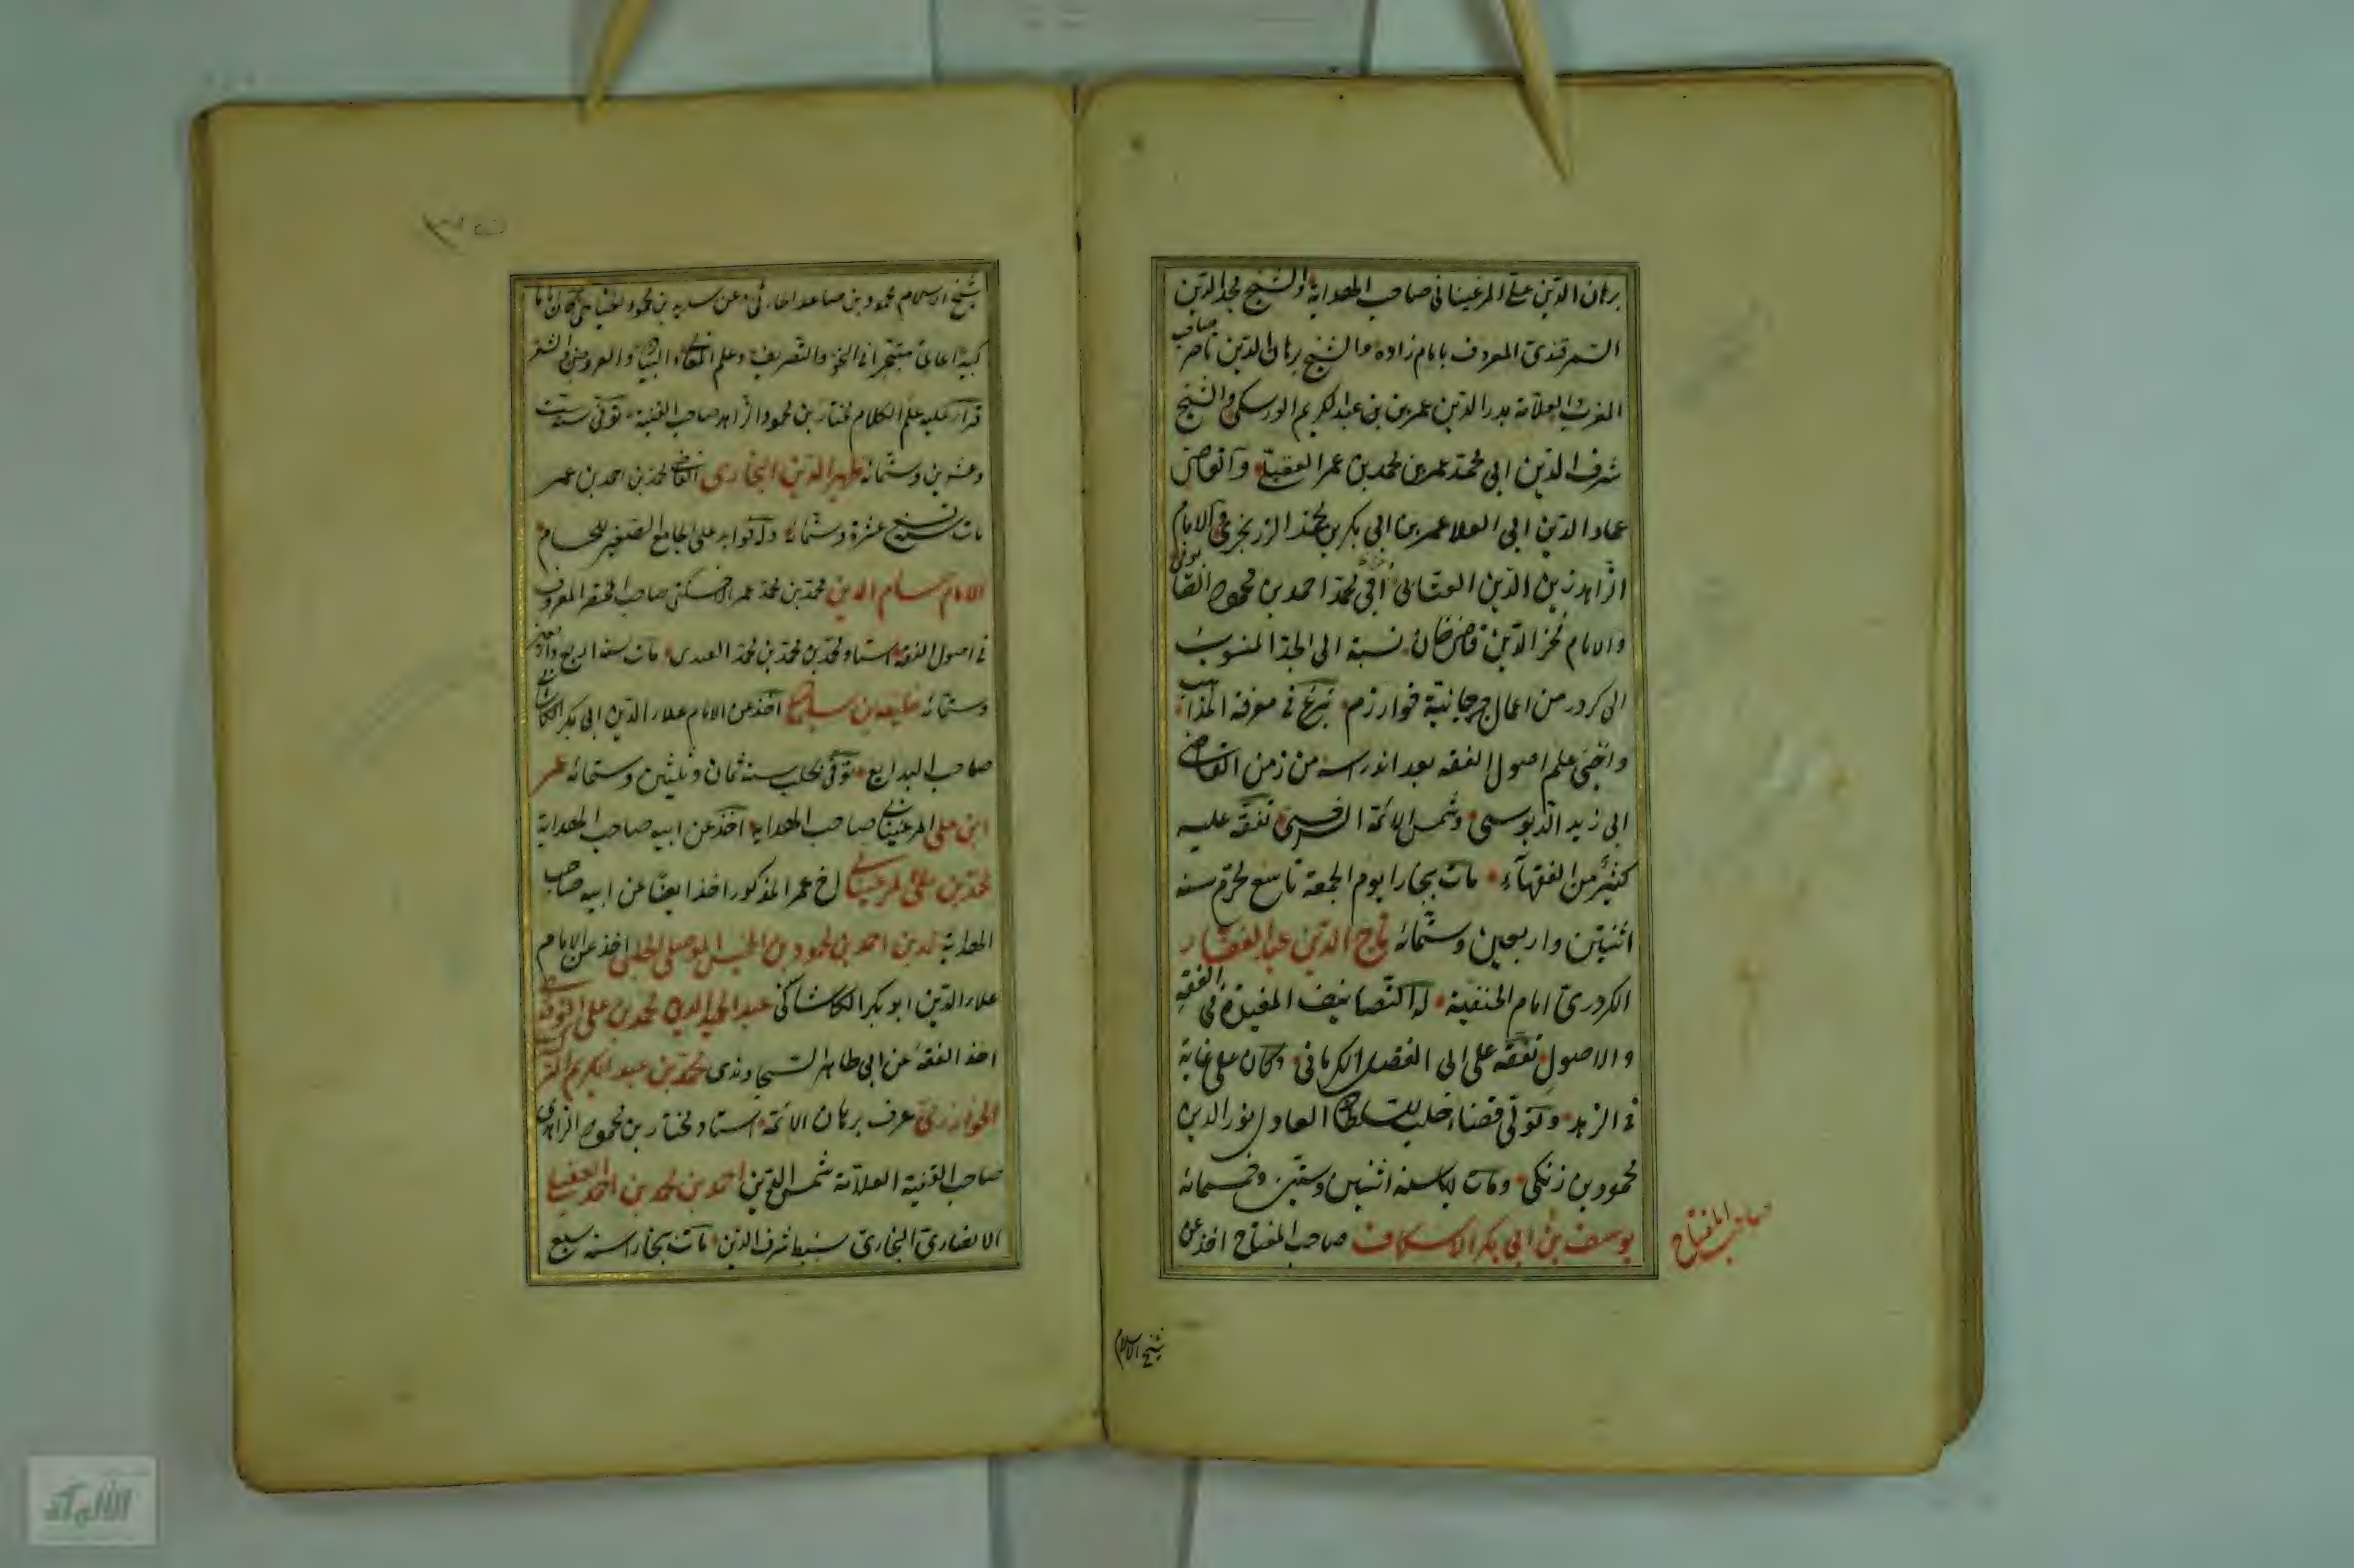 برهان الدين على المرغينانى صاحب الهداية والشيخ مجد الدين
السمرقندى المعروف بامام زاده والشيخ برهان الدين ناصر صاحب
المغرب والعلامة بدر الدين عمر بن عبد الكريم الورسكى والشيخ
شرف الدين ابى محمد عمر بن محمد بن عمر العقيلى والقاضى
عماد الدين ابى العلا عمر بن ابى بكر بن محمد الزرنجرى والامام
الزاهد زين الدين العتابى ابى محمد احمد بن محمود القاضى
والامام فخر الدين قاضى خان نسبة الى الجد المنسوب
الى كردر من اعمال جرجانية خوارزم برع فى معرفة المذاهب
واحيى علم اصول الفقه بعد اندراسه من زمن القاضى
ابى زيد الدبوسى وشمس الائمة السرخسى تفقه عليه
كثير من الفقهاء مات ببخارا يوم الجمعة تاسع محرم سنه
اثنتين واربعين وستمائه تاج الدين عبد الغفار
الكردرى امام الحنفية له التصانيف المفيدة فى الفقه
والاصول تفقه على ابى الفضل الكرمانى وكان على غاية
فى الزهد وتولى قضاء حلب للسلطان العادل نور الدين
محمود بن زنكى ومات بها سنه اثنين وستين وخمسمائه
يوسف بن ابى بكر الاسكاف صاحب المفتاح اخذ عن
صاحب المفتاح
شيخ الاسلام
شيخ الاسلام محمود بن صاعد الحارثى وعن سديد بن محمود الحناطى كان اماما
كبيرا عالما متبحرا فى النحو والتصريف وعلم المعانى والبيان والعروض والشعر
قرأ عليه علم الكلام مختار بن محمود الزاهد صاحب القنية توفى سنه ست
وعشرين وستمائه ظهير الدين البخارى القاضى محمد بن احمد بن عمر
مات سنه تسع عشرة وستمائه وله فوايد على الجامع الصغير للحسام
الامام حسام الدين محمد بن محمد عمر الاخسيكتى صاحب المختصر المعروف
فى اصول الفقه استاد محمد بن محمد بن محمد العبدى مات سنه اربع واربعين
وستمائه خليفه بن سليمان اخذ عن الامام علاء الدين ابى بكر الكاشانى
صاحب البدايع توفى بحلب سنه ثمان وثلثين وستمائه عمر
ابن على المرغينانى صاحب الهداية اخذ عن ابيه صاحب الهداية
محمد بن على المرغينانى اخ عمر المذكور اخذ ايضا عن ابيه صاحب
الهداية احمد بن محمود بن الموصلى الحلبى اخذ عن الامام
علاء الدين ابو بكر الكاشانى محمد بن على
اخذ الفقه عن ابى طاهر السجاوندى محمد بن عبد الكريم
الخوارزمى عرف ببرهان الائمة استاد مختار بن محمود الزاهدى
صاحب القنية العلامة شمس الدين احمد بن محمد بن احمد العقيلى
الانصارى البخارى سبط شرف الدين مات ببخارا سنه سبع